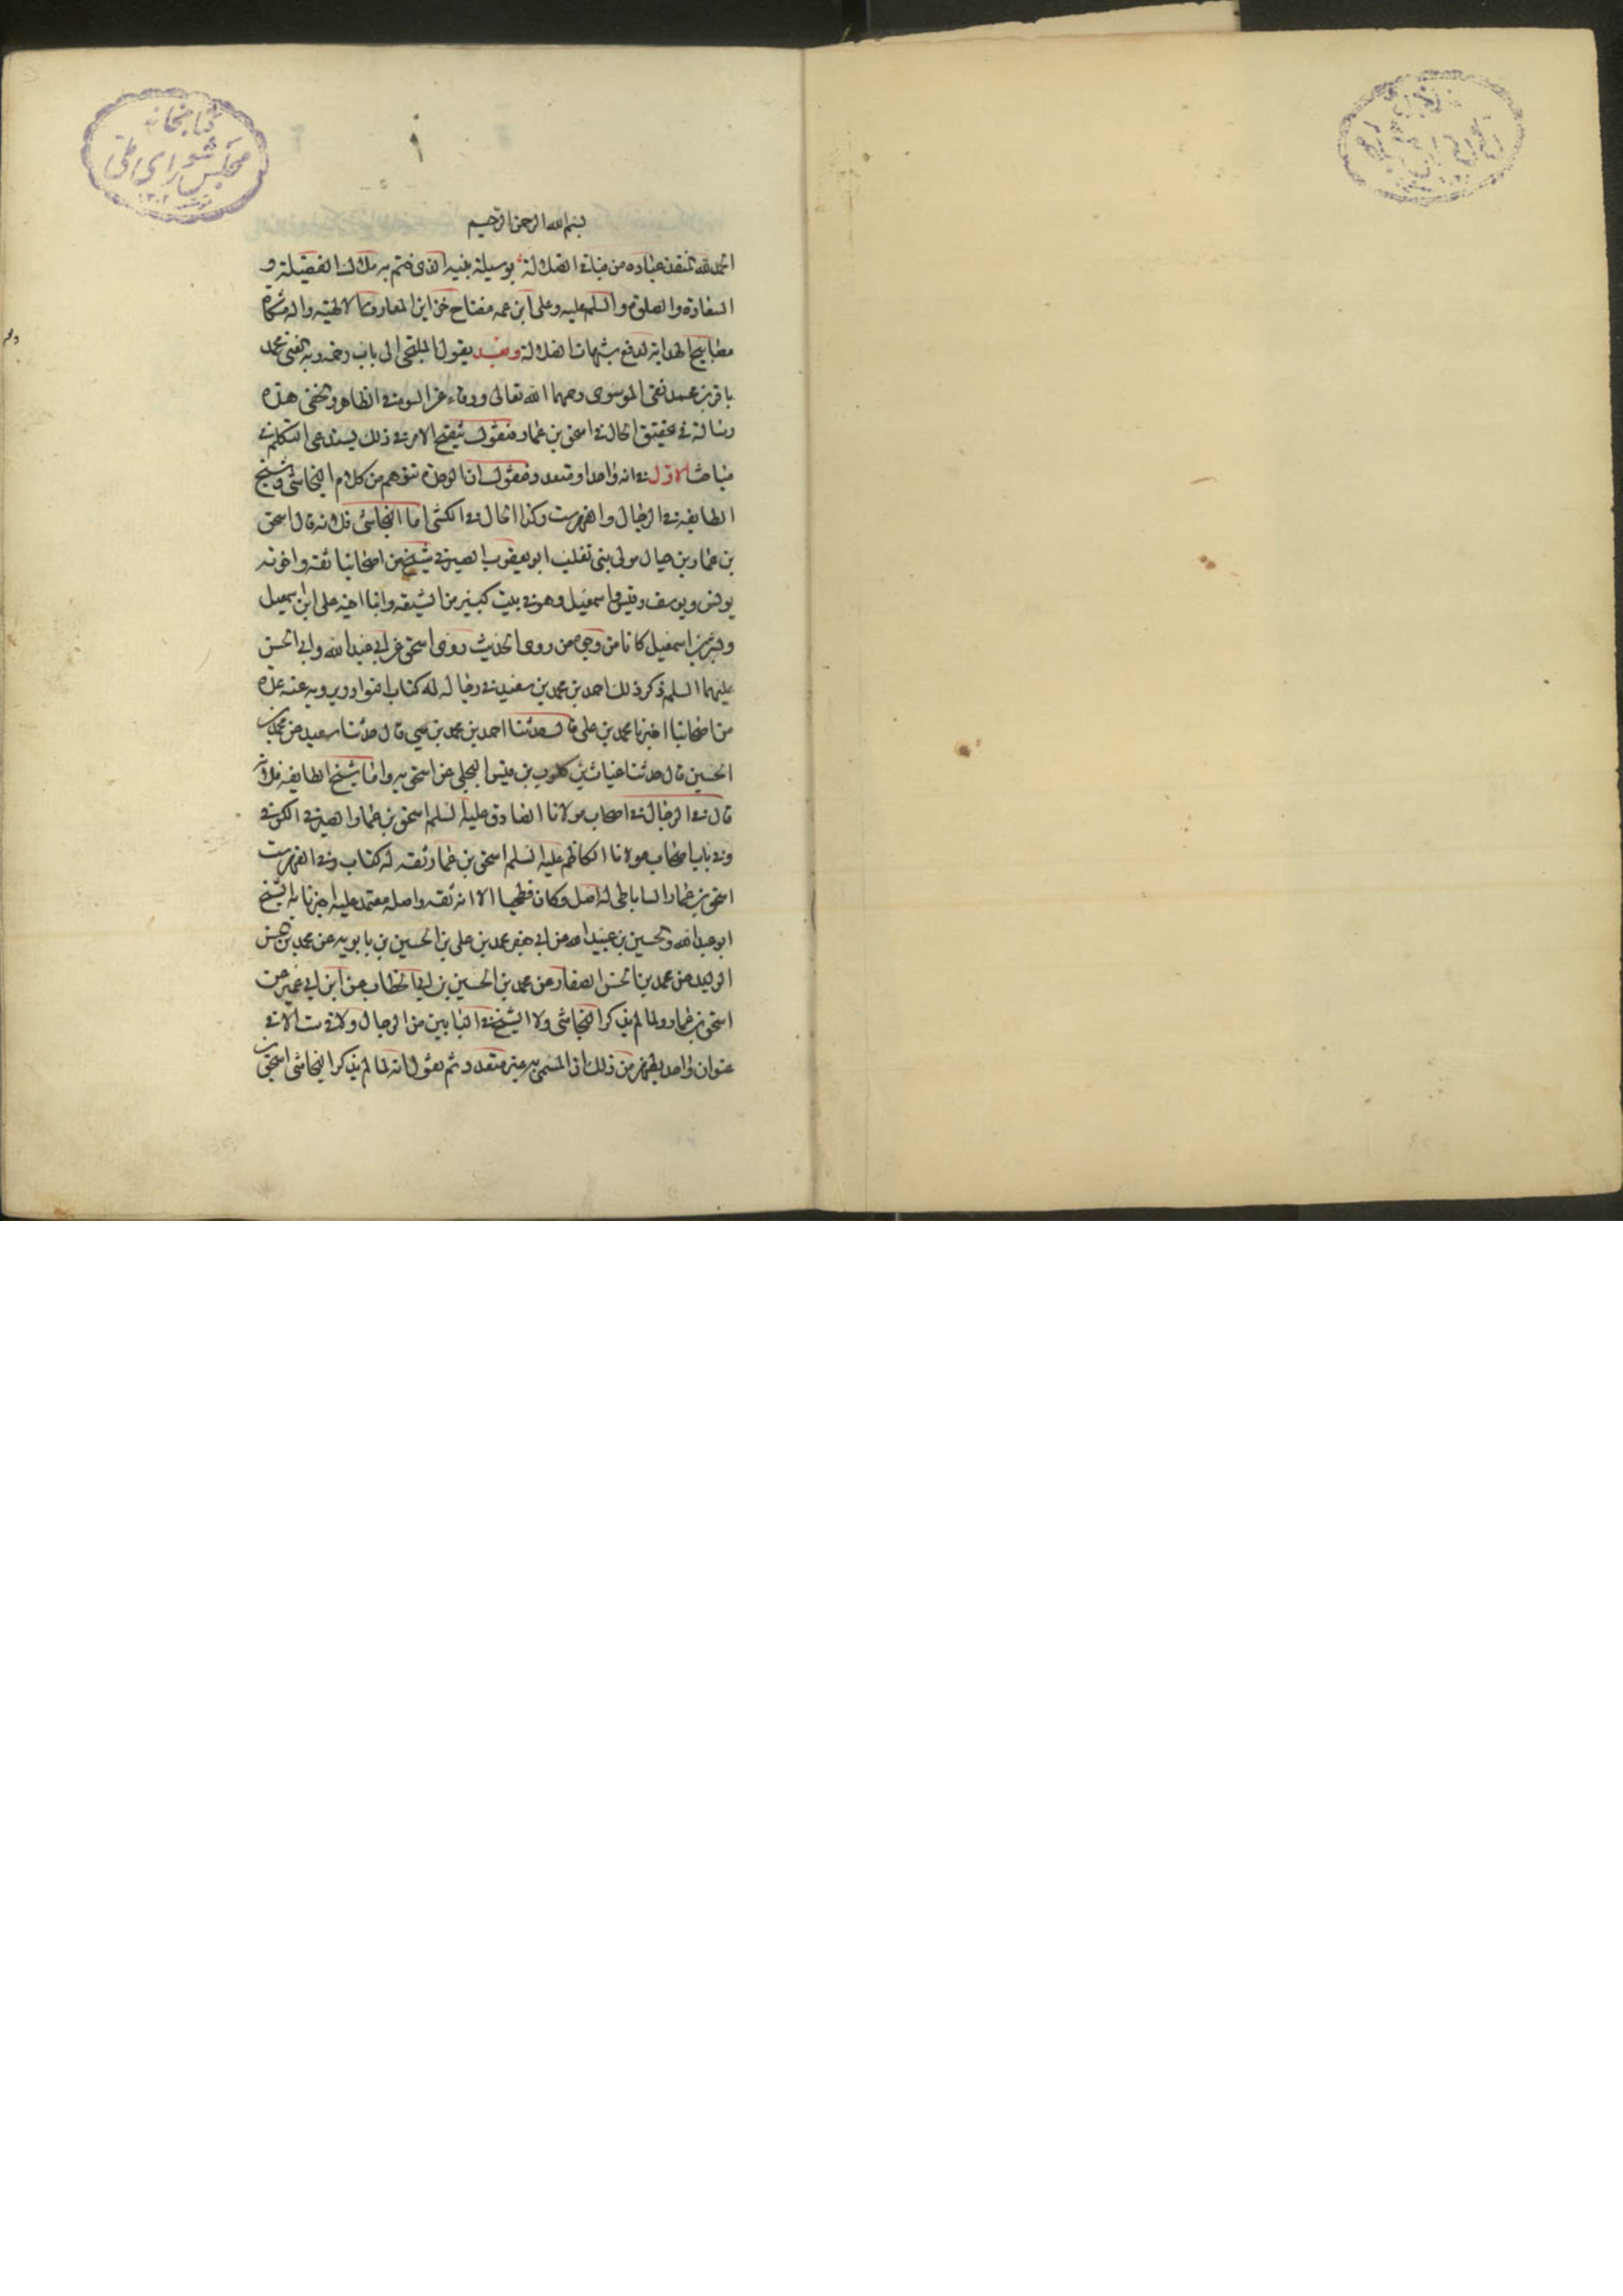 كتابخانه
مجلس شورای ملی
١
بسم الله الرحمن الرحيم
الحمد لله المنقذ عباده من الضلالة بوسيلة نبيه الذى ختم به الفضيلة و
السعادة والصلوة والسلم عليه وعلى ابن عمه مفتاح خزاين المعارف الالهية واله مشكاة
مصابيح الهداية لدفع شبهات الضلالة وبعد يقول الملتجى الى باب رحمة ربه الغنى محمد
باقر بن محمد نقى الموسوى رحمهما الله تعالى ووقاه عن السوء فى الظاهر والخفى هذه
رسالة فى تحقيق الحال فى اسحق بن عمار فنقول تنقيح الامر فى ذلك يستدعى التكلم فى
مباحث الاول فى انه واحد او متعدد فنقول ان الوحدة تتوهم من كلام النجاشى وشيخ
الطايفه فى الرجال والفهرست وكذا الحال فى الكشى اما النجاشى فلانه قال اسحق
بن عمار بن حيان مولى بنى تغلب ابو يعقوب الصيرفى شيخ من اصحابنا ثقه واخوته
يونس ويوسف وقيس واسمعيل وهو فى بيت كبير من الشيعه وابنا اخيه على ابن اسمعيل
وبشر بن اسمعيل كانا من وجوه من روى الحديث روى اسحق عن ابى عبد الله وابى الحسن
عليهما السلم ذكر ذلك احمد بن محمد بن سعيد فى رجاله له كتاب نوادر يرويه عنه عدة
من اصحابنا اخبرنا محمد بن على قال حدثنا احمد بن محمد بن يحيى قال حدثنا سعيد عن محمد بن
الحسين قال حدثنا غياث بن كلوب بن قيس البجلى عن اسحق به واما شيخ الطايفه فلانه
قال فى الرجال فى اصحاب مولانا الصادق عليه السلم اسحق بن عمار الصيرفى الكوفى
وفى باب اصحاب مولانا الكاظم عليه السلم اسحق بن عمار ثقه له كتاب وفى الفهرست
اسحق بن عمار الساباطى له اصل وكان فطحيا الا انه ثقه واصله معتمد عليه اخبرنا به الشيخ
ابو عبد الله والحسين بن عبيد الله عن ابى جعفر محمد بن على بن الحسين بن بابويه عن محمد بن الحسن
الوليد عن محمد بن الحسن الصفار عن محمد بن الحسين بن ابى الخطاب عن ابن ابى عمير عن
اسحق بن عمار ولما لم يذكر النجاشى ولا الشيخ فى البابين من الرجال ولا فى ست الا فى
عنوان واحد يظهر من ذلك ان المسمى به غير متعدد ثم نقول انه لما لم يذكر النجاشى اسحق بن